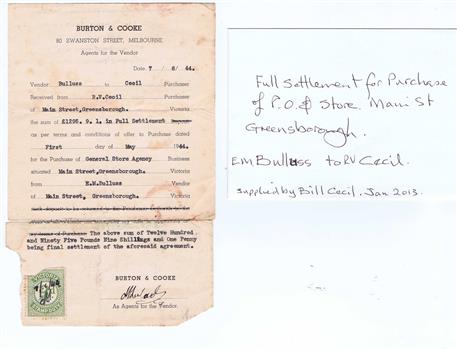 BURTON & COOKE
80 SWANSTON STREET, MELBOURNE
Agents for the Vendor
Date 7 / 8 / 44.
Vendor Bulluss to Cecil Purchaser
Received from R.V.Cecil Purchaser
of Main Street,Greensborough. Victoria
the sum of £1295. 9. 1. in Full Settlement
as per terms and conditions of offer to Purchase dated
First day of May 1944.
for the Purchase of General Store Agency Business
situated Main Street,Greensborough. Victoria
from E.M.Bulluss Vendor
of Main Street, Greensborough. Victoria
The above sum of Twelve Hundred
and Ninety Five Pounds Nine Shillings and One Penny
being final settlement of the aforesaid agreement.
BURTON & COOKE
As Agents for the Vendor.
VICTORIA
STAMP DUTY
Full Settlement for Purchase
of P.O. & Store. Main St
Greensborough.
E.M Bulluss to RV Cecil.
supplied by Bill Cecil. Jan 2013.